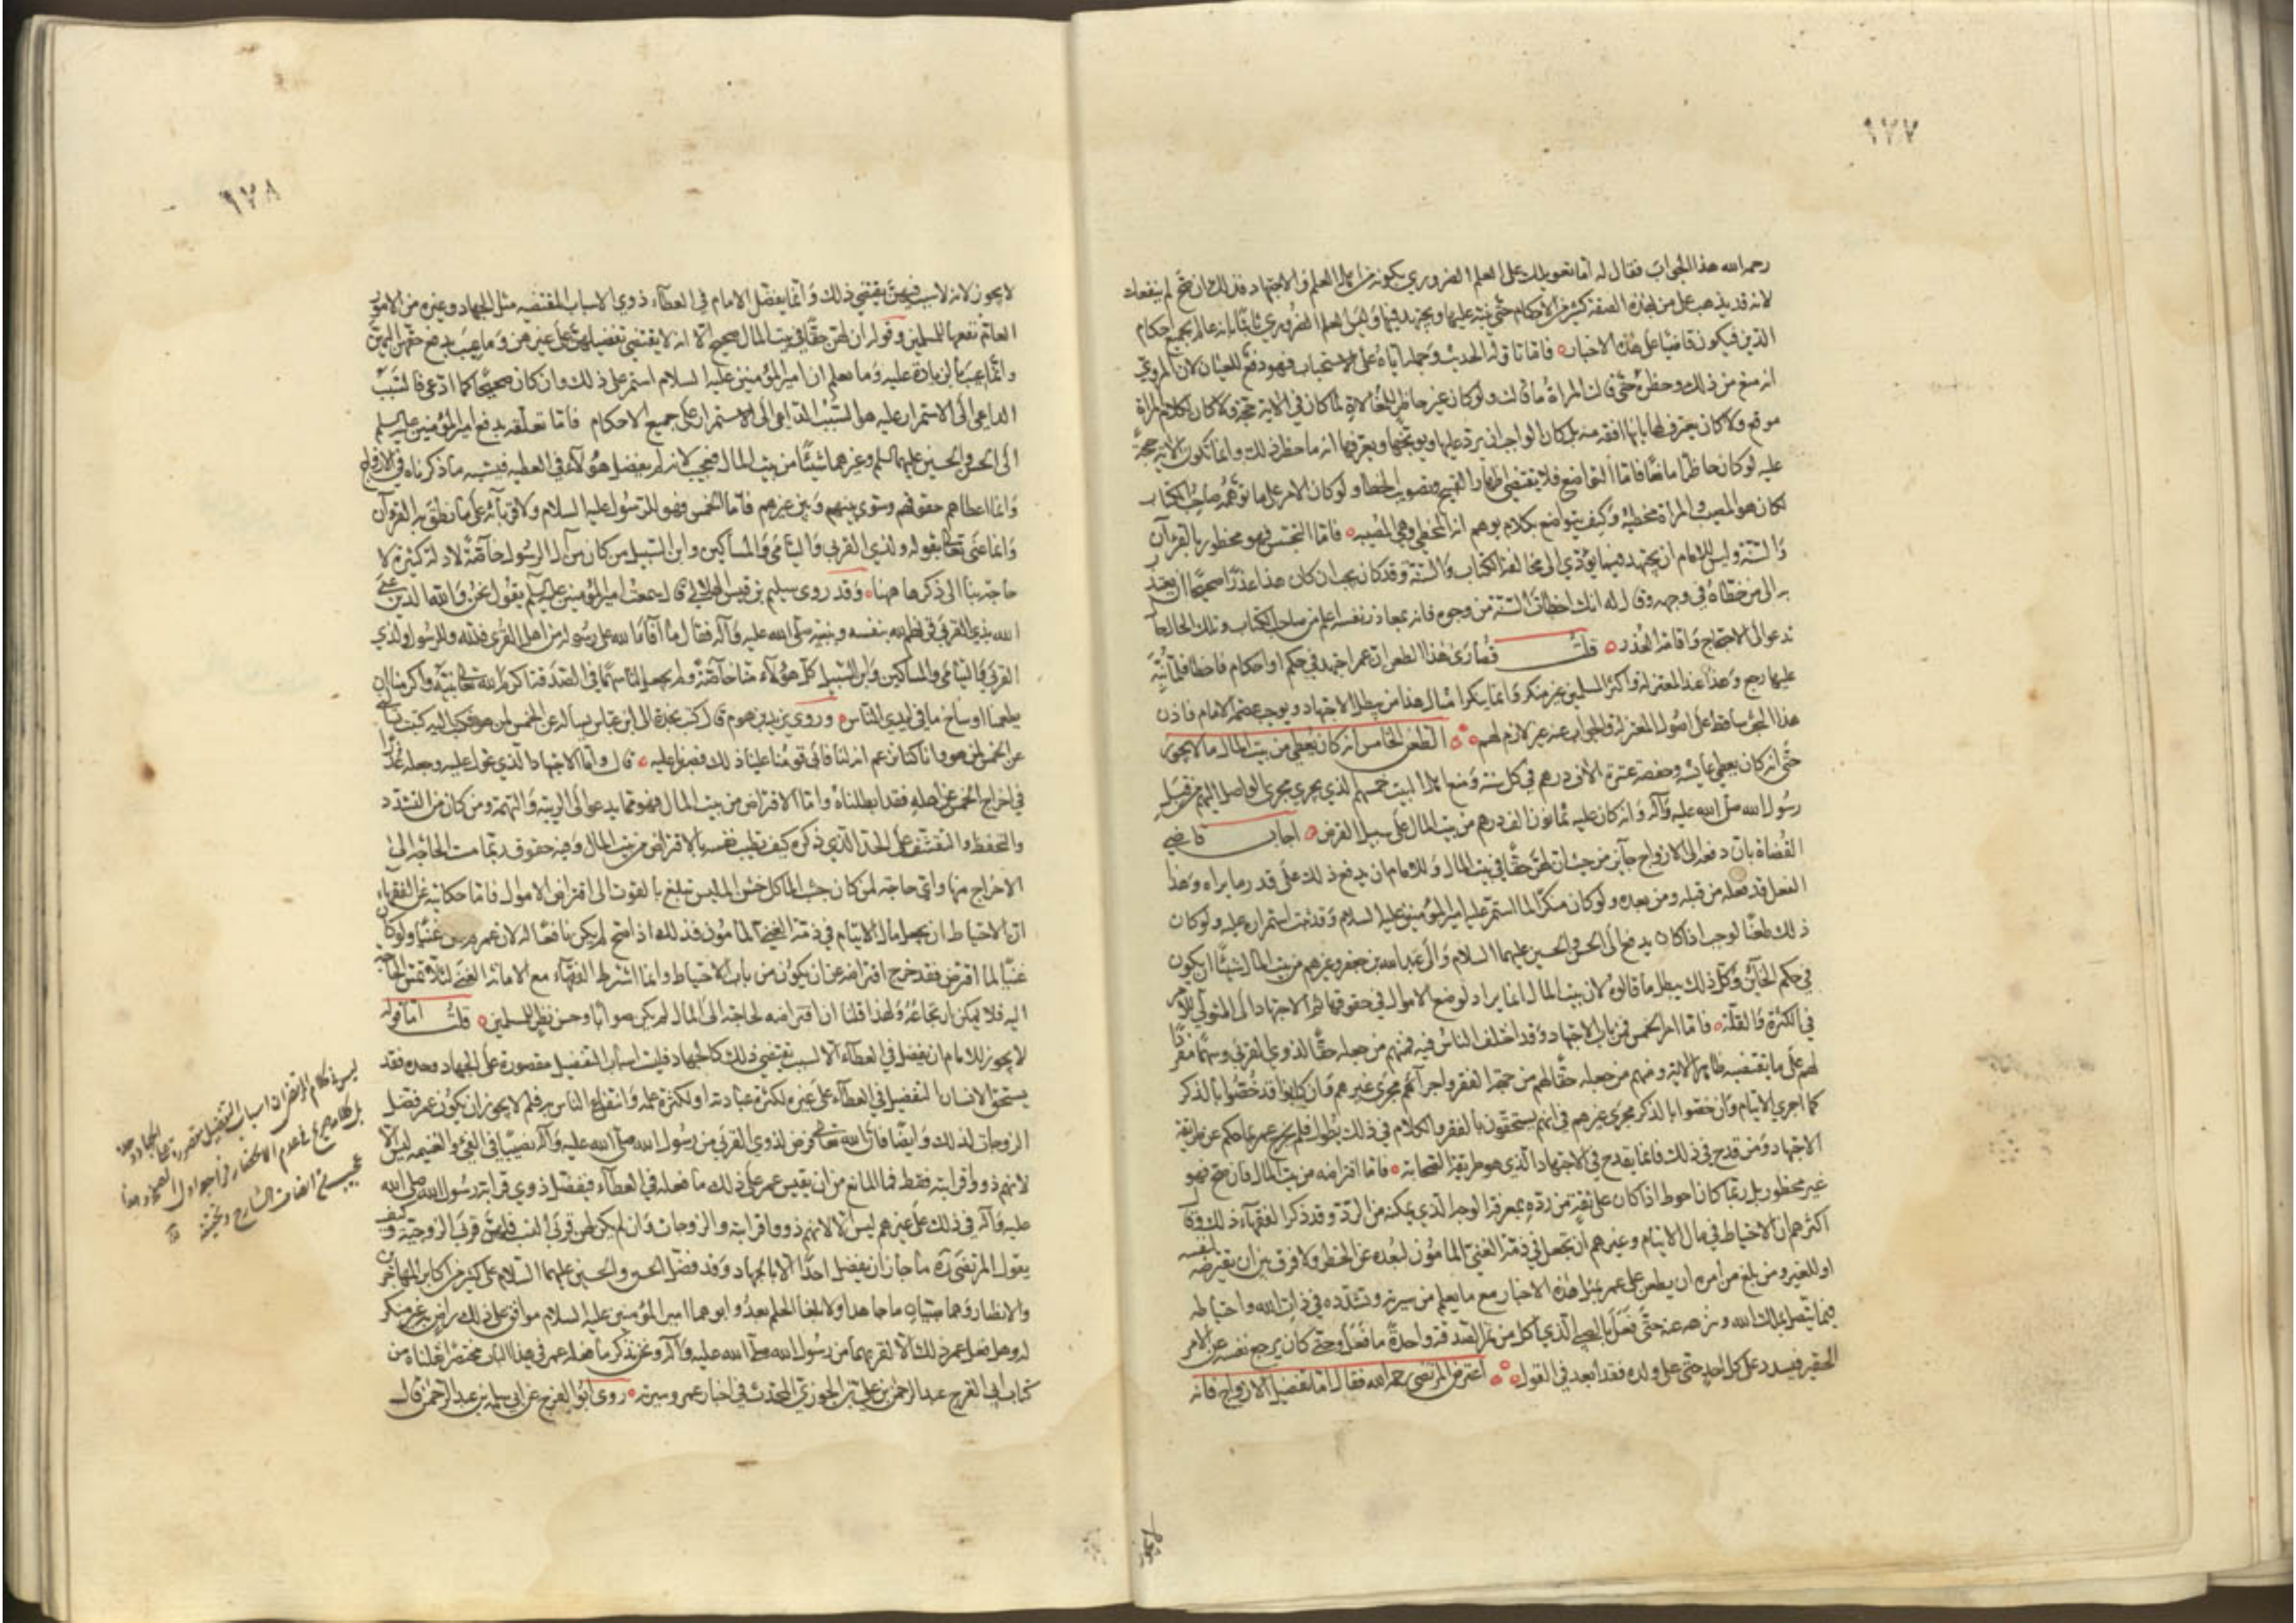 ١٧٧
رحمه الله هذا الجواب فقال له اما تعويلك على العلم الضروري بكونه من اهل العلم والاجتهاد فذلك ان صح لم ينفعك
لانه قد يذهب على من هذه الصفة كثير من الاحكام حتى ينبه عليها ويجتهد فيها وليس العلم الضروري ثابتا بانه عالم بجميع احكام
الدين فيكون قاضيا على هذه الاخبار فاما تاوله الحديث وحمله اياه على الاستحباب فهو دفع للعيان لان المروي
انه منع من ذلك وحظره حتى قالت المراة ما قالت ولو كان غير حاظر للمغالاة لما كان في الاية حجة ولا كان لكلام المراة
موقع ولا كان يعترف لها بانها افقه منه بل كان الواجب ان يرد عليها ويوبخها ويعرفها انه ما حظر ذلك وانما تكون الاية حجة
عليه لو كان حاظرا مانعا فاما التواضع فلا يقتضي اظهار القبيح وتصويب الخطا ولو كان الامر على ما توهمه صاحب الكتاب
لكان هو المصيب والمراة مخطية وكيف يتواضع بكلام يوهم انه المخطي وهي المصيبة فاما التجسس فهو محظور بالقران
والسنة وليس للامام ان يجتهد فيما يؤدي الى مخالفة الكتاب والسنة وقد كان يجب ان كان هذا عذرا صحيحا ان يعتذر
به الى من خطاه في وجهه وقال له انك اخطات السنة من وجوه فانه بمعاذير نفسه اعلم من صاحب الكتاب وتلك الحال
تدعو الى الاحتجاج واقامة العذر قلت قصارى هذا الطعن ان عمر اجتهد في حكم او احكام فاخطا فلما نبه
عليها رجع وهذا عند المعتزلة واكثر المسلمين غير منكر وانما ينكر امثال هذا من يبطل الاجتهاد ويوجب عصمة الامام فاذن
هذا البحث ساقط على اصول المعتزلة والجواب عنه غير لازم لهم الطعن الخامس انه كان يعطي من بيت المال ما لا يجوز
حتى انه كان يعطي عايشة وحفصة عشرة الاف درهم في كل سنة ومنع اهل البيت خمسهم الذي يجري مجرى الواصل اليهم من قبل
رسول الله صلى الله عليه وآله وانه كان عليه ثمانون الف درهم من بيت المال على سبيل القرض اجاب قاضي
القضاة بان دفعه الى الازواج جايز من حيث ان لهن حقا في بيت المال وللامام ان يدفع ذلك على قدر ما يراه وهذا
الفعل قد فعله من قبله ومن بعده ولو كان منكرا لما استمر عليه امير المؤمنين عليه السلام وقد ثبت استمراره عليه ولو كان
ذلك طعنا لوجب اذا كان يدفع الى الحسن والحسين عليهما السلام والى عبد الله بن جعفر وغيرهم من بيت المال شيئا ان يكون
في حكم الخاين وكل ذلك يبطل ما قالوه لان بيت المال انما يراد لوضع الاموال في حقوقها ثم الاجتهاد الى المتولي للامر
في الكثرة والقلة فاما امر الخمس فمن باب الاجتهاد وقد اختلف الناس فيه فمنهم من جعله حقا لذوي القربى وسهما مفردا
لهم على ما يقتضيه ظاهر الاية ومنهم من جعله حقا لهم من جهة الفقر واجراهم مجرى غيرهم وان كانوا قد خصوا بالذكر
كما اجرى الايتام وان خصوا بالذكر مجرى غيرهم في انهم يستحقون بالفقر والكلام في ذلك يطول فلم يخرج عمر بما حكم عن طريقة
الاجتهاد ومن قدح في ذلك فانما يقدح في الاجتهاد الذي هو طريقة الصحابة فاما اقتراضه من بيت المال فان صح فهو
غير محظور بل ربما كان احوط اذا كان على ثقة من رده بمعرفة الوجه الذي يمكنه من الرد وقد ذكر الفقهاء ذلك وقال
اكثرهم ان الاحتياط في مال الايتام وغيرهم ان تجعل في ذمة الغني المامون لبعده عن الخطر ولا فرق بين ان يقرضه لنفسه
او للغير ومن بلغ من امره ان يطعن على عمر بمثل هذه الاخبار مع ما يعلم من سيرته وتشدده في ذات الله واحتياطه
فيما يتصل بملك الله وتنزهه عنه حتى فعل بالصبي الذي اكل من تمر الصدقة واحدة ما فعل وحتى كان يرفع نفسه عن الامر
الحقير ويشدد على كل احد حتى على ولده فقد ابعد في القول اعترض المرتضى رحمه الله فقال اما تفضيل الازواج فانه
١٧٨
لا يجوز لانه لا سبب فيهن يقتضي ذلك وانما يفضل الامام في العطاء ذوي الاسباب المقتضيه مثل الجهاد وغيره من الامور
العام نفعها للمسلمين وقوله ان لهن حقا في بيت المال صحيح الا انه لا يقتضي تفضيلهن على غيرهن وما عيب بدفع حقهن اليهن
وانما عيب بالزيادة عليه وما يعلم ان امير المؤمنين عليه السلام استمر على ذلك وان كان صحيحا كما ادعى فالسبب
الداعي الى الاستمرار عليه هو السبب الداعي الى الاستمرار على جميع الاحكام فاما تعلقه بدفع امير المؤمنين عليه السلم
الى الحسن والحسين عليهما السلم وغيرهما شيئا من بيت المال فعجيب لانه لم يفضل هؤلاء في العطية فيشبه ما ذكرناه في الازواج
وانما اعطاهم حقوقهم وسوى بينهم وبين غيرهم فاما الخمس فهو للرسول عليه السلام ولاقربائه على ما نطق به القرآن
وانما عنى تعالى بقوله ولذي القربى واليتامى والمساكين وابن السبيل من كان من آل الرسول خاصة لادلة كثيرة لا
حاجة بنا الى ذكرها ههنا وقد روى سليم بن قيس الهلالي قال سمعت امير المؤمنين عليه السلم يقول نحن والله الذين عنى
الله بذي القربى قرنهم الله بنفسه ونبيه صلى الله عليه وآله فقال ما آفاء الله على رسوله من اهل القرى فلله وللرسول ولذي
القربى واليتامى والمساكين وابن السبيل كل هؤلاء منا خاصة ولم يجعل لنا سهما في الصدقة اكرم الله تعالى نبيه واكرمنا ان
يطعمنا اوساخ ما في ايدي الناس وروى يزيد بن هرم قال كتب نجدة الى ابن عباس يساله عن الخمس لمن هو فكتب اليه كتبت تسالني
عن الخمس لمن هو وانا كنا نزعم انه لنا فابى قومنا علينا ذلك فصبرنا عليه قال واما الاجتهاد الذي عول عليه وجعله عذرا
في اخراج الخمس عن اهله فقد ابطلناه واما الاقتراض من بيت المال فهو مما يدعو الى الريبة والتهمة ومن كان من التشدد
والتحفظ والتقشف على الحد الذي ذكره كيف تطيب نفسه بالاقتراض من بيت المال وفيه حقوق ربما مست الحاجة الى
الاخراج منها واي حاجة لمن كان جشب الماكل خشن الملبس يتبلغ بالقوت الى اقتراض الاموال فاما حكايته عن الفقهاء
ان الاحتياط ان يجعل مال الايتام في ذمة الغني المامون فذلك اذا صح لم يكن نافعا له لان عمر لم يكن غنيا ولو كان
غنيا لما اقترض فقد خرج اقتراضه عن ان يكون من باب الاحتياط وانما اشترط الفقهاء مع الامانة الغنى لئلا تمس الحاجة
اليه فلا يمكن ارتجاعه ولهذا قلنا ان اقتراضه لحاجته الى المال لم يكن صوابا وحسن نظر للمسلمين قلت اما قوله
لا يجوز للامام ان يفضل في العطاء الا لسبب يقتضي ذلك كالجهاد فليست اسباب التفضيل مقصورة على الجهاد وحده فقد
يستحق الانسان التفضيل في العطاء على غيره لكثرة عبادته او لكثرة علمه وانتفاع الناس به فلم لا يجوز ان يكون عمر فضل
الزوجات لذلك وايضا فان الله تعالى فرض لذوي القربى من رسول الله صلى الله عليه وآله نصيبا في الفيء والغنيمة ليس الا
لانهم ذووا قرابته فقط فما المانع من ان يقيس عمر على ذلك ما فعله في العطاء فيفضل ذوي قرابة رسول الله صلى الله
عليه وآله في ذلك على غيرهم ليس الا لانهم ذووا قرابته والزوجات وان لم يكن لهن قربى النسب فلهن قربى الزوجية وكيف
يقول المرتضى ره ما جاز ان يفضل احدا الا بالجهاد وقد فضل الحسن والحسين عليهما السلام على كثير من اكابر المهاجرين
والانصار وهما صبيان ما جاهدا ولا بلغا الحلم بعد وابوهما امير المؤمنين عليه السلام موافق على ذلك راض به غير منكر
له وهل فعل عمر ذلك الا لقربهما من رسول الله صلى الله عليه وآله ونحن نذكر ما فعله عمر في هذا الباب مختصرا نقلناه من
كتاب ابي الفرج عبد الرحمن بن علي بن الجوزي المحدث في اخبار عمر وسيرته روى ابو الفرج عن ابي سلمة بن عبد الرحمن قال
ليس في كلام المرتضى ان اسباب التفضيل مقصورة على الجهاد وحده